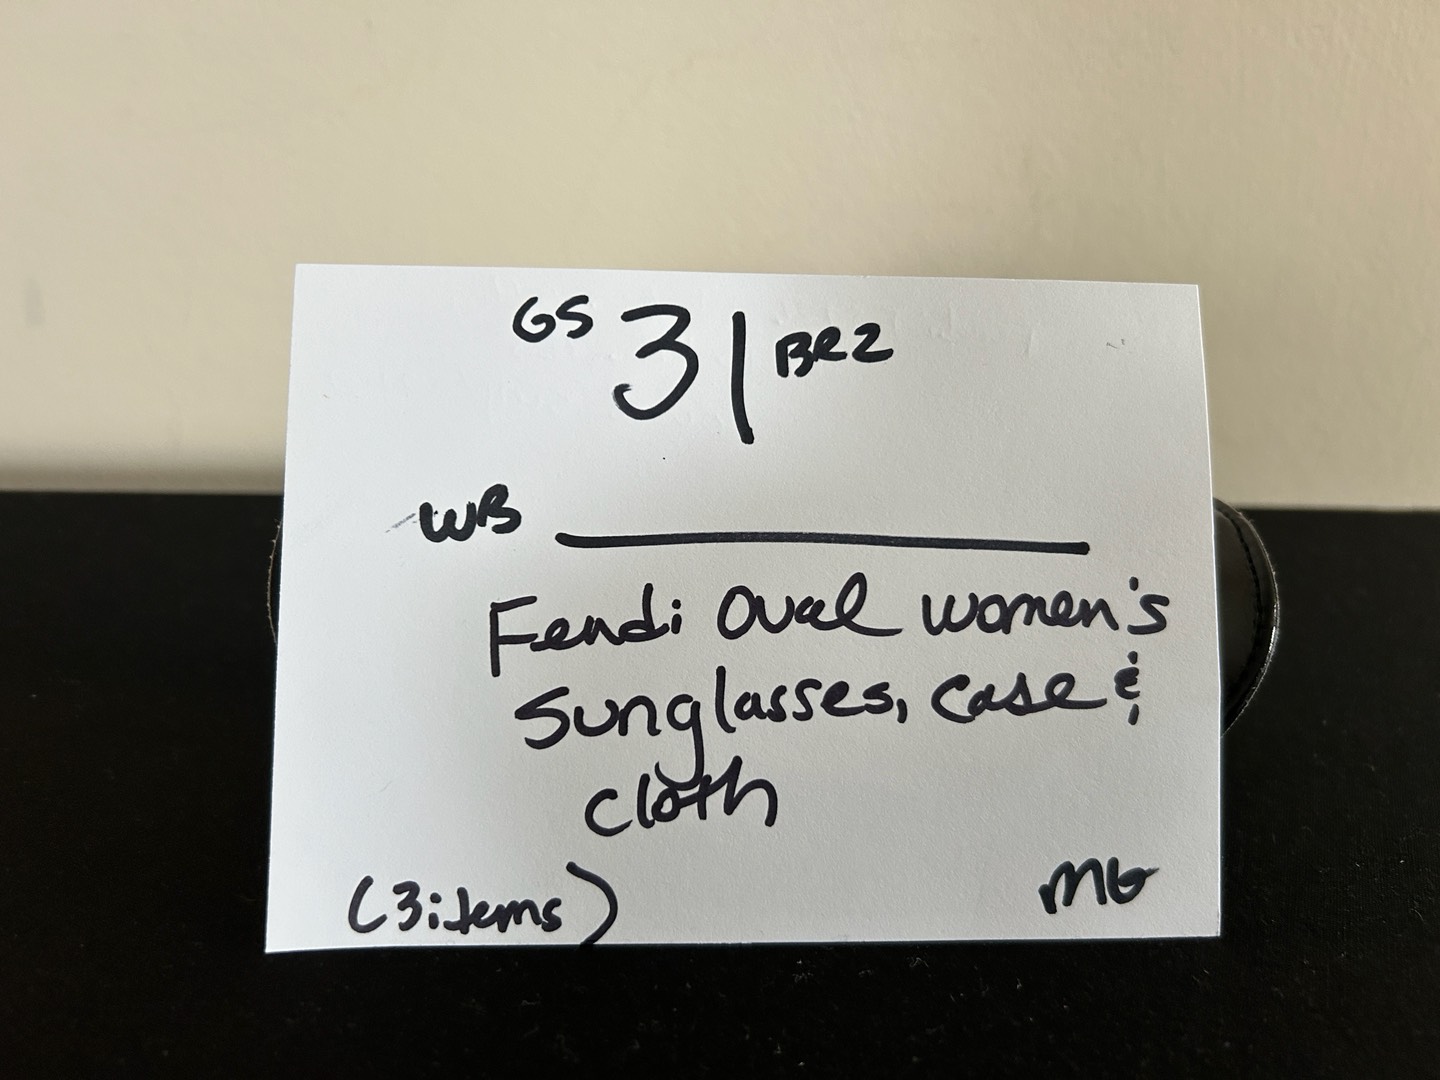 GS 31 BR2
WB
Fendi Oval women's
Sunglasses, case &
cloth
(3 items)
MG